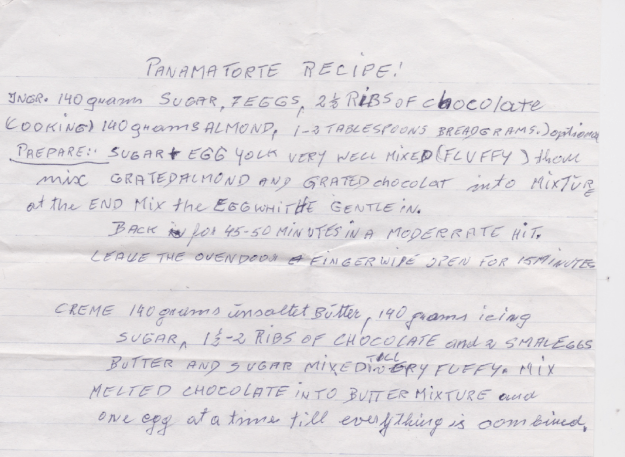 PANAMATORTE RECIPE!
INGR. 140 grams SUGAR, 7 EGGS, 2½ RIBS OF chocolate
(COOKING) 140 grams ALMOND, 1-2 TABLESPOONS BREADGRAMS.) optional
PREPARE:. SUGAR + EGG YOLK VERY WELL MIXED (FLUFFY) then
mix GRATED ALMOND AND GRATED chocolat into MIXTURE
at the END MIX the EGGWHITTE GENTLE IN.
BACK in for 45-50 MINUTES IN A MODERRATE HIT.
LEAVE THE OVENDOOR A FINGERWIPE OPEN FOR 15 MINUTES
CREME 140 grams unsaltet Butter, 140 grams icing
SUGAR, 1½-2 RIBS OF CHOCOLATE and 2 SMAL EGGS
BUTTER AND SUGAR MIXED TILL VERY FLUFFY. MIX
MELTED CHOCOLATE INTO BUTTER MIXTURE and
one egg at a time till everything is combined.